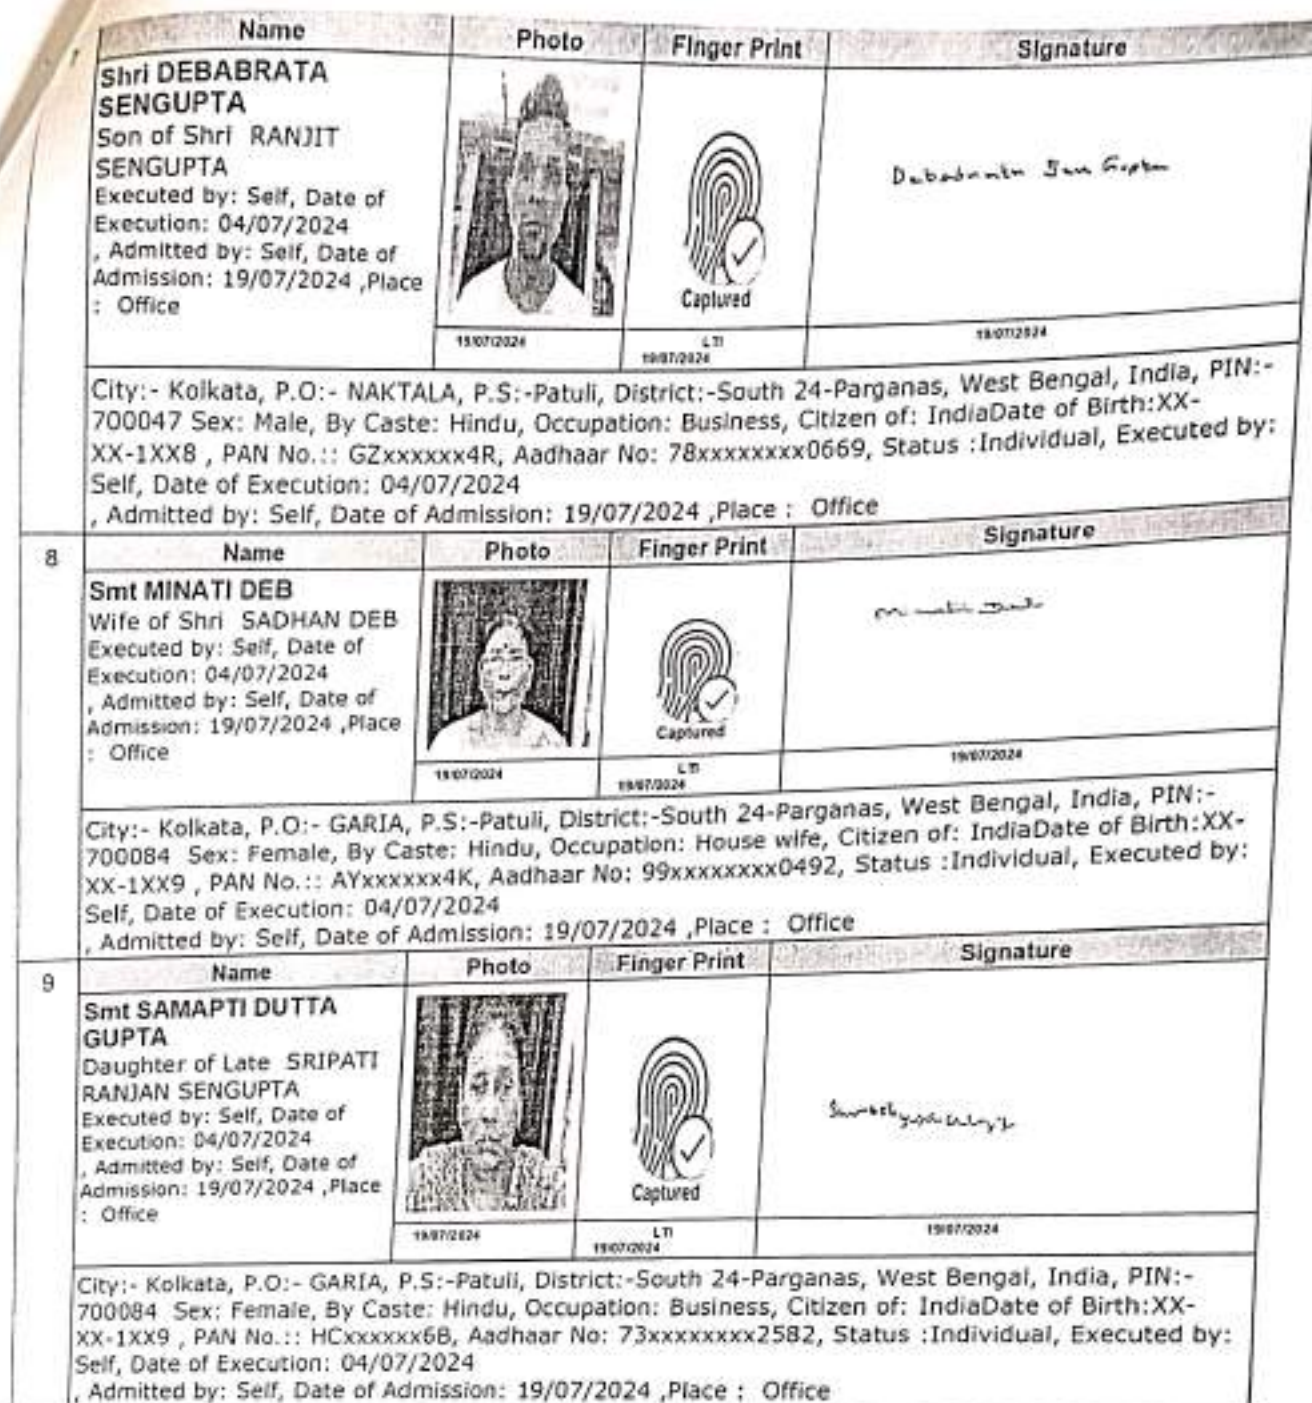 7
Name Photo Finger Print Signature
Shri DEBABRATA
SENGUPTA
Son of Shri RANJIT
SENGUPTA
Executed by: Self, Date of
Execution: 04/07/2024
, Admitted by: Self, Date of
Admission: 19/07/2024 ,Place
: Office
Captured
Debabrata Sen Gupta
19/07/2024 LTI 19/07/2024
19/07/2024
City:- Kolkata, P.O:- NAKTALA, P.S:-Patuli, District:-South 24-Parganas, West Bengal, India, PIN:-
700047 Sex: Male, By Caste: Hindu, Occupation: Business, Citizen of: IndiaDate of Birth:XX-
XX-1XX8 , PAN No.:: GZxxxxxx4R, Aadhaar No: 78xxxxxxxx0669, Status :Individual, Executed by:
Self, Date of Execution: 04/07/2024
, Admitted by: Self, Date of Admission: 19/07/2024 ,Place : Office
8
Name Photo Finger Print Signature
Smt MINATI DEB
Wife of Shri SADHAN DEB
Executed by: Self, Date of
Execution: 04/07/2024
, Admitted by: Self, Date of
Admission: 19/07/2024 ,Place
: Office
Captured
Minati Deb
19/07/2024 LTI 19/07/2024
19/07/2024
City:- Kolkata, P.O:- GARIA, P.S:-Patuli, District:-South 24-Parganas, West Bengal, India, PIN:-
700084 Sex: Female, By Caste: Hindu, Occupation: House wife, Citizen of: IndiaDate of Birth:XX-
XX-1XX9 , PAN No.:: AYxxxxxx4K, Aadhaar No: 99xxxxxxxx0492, Status :Individual, Executed by:
Self, Date of Execution: 04/07/2024
, Admitted by: Self, Date of Admission: 19/07/2024 ,Place : Office
9
Name Photo Finger Print Signature
Smt SAMAPTI DUTTA
GUPTA
Daughter of Late SRIPATI
RANJAN SENGUPTA
Executed by: Self, Date of
Execution: 04/07/2024
, Admitted by: Self, Date of
Admission: 19/07/2024 ,Place
: Office
Captured
19/07/2024 LTI 19/07/2024
19/07/2024
City:- Kolkata, P.O:- GARIA, P.S:-Patuli, District:-South 24-Parganas, West Bengal, India, PIN:-
700084 Sex: Female, By Caste: Hindu, Occupation: Business, Citizen of: IndiaDate of Birth:XX-
XX-1XX9 , PAN No.:: HCxxxxxx6B, Aadhaar No: 73xxxxxxxx2582, Status :Individual, Executed by:
Self, Date of Execution: 04/07/2024
, Admitted by: Self, Date of Admission: 19/07/2024 ,Place : Office